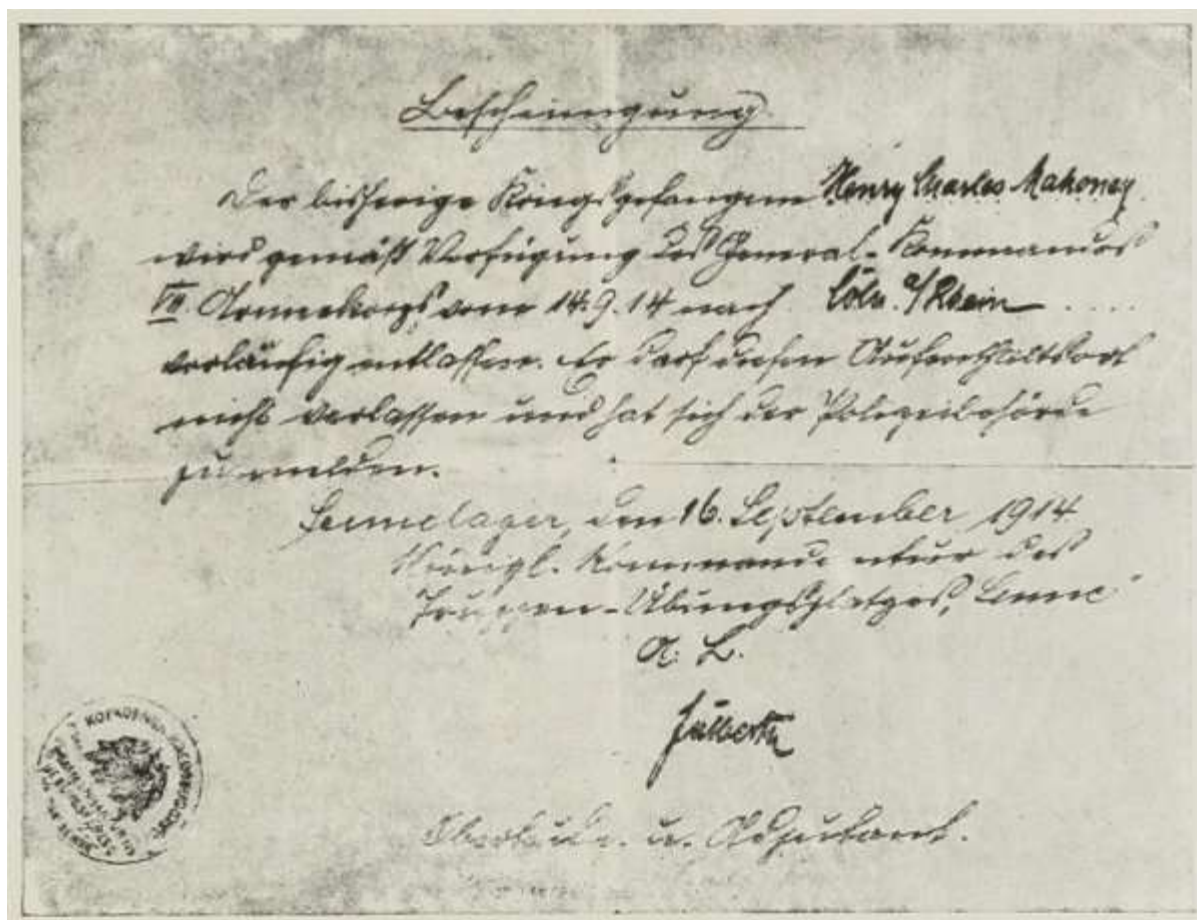 Bescheinigung.
Der bisherige Kriegsgefangene Henry Charles Mahoney
wird gemäß Verfügung des General-Kommandos
VII. Armeekorps vom 14.9.14 nach Cöln a/Rhein
vorläufig entlassen. Er darf diesen Aufenthaltsort
nicht verlassen und hat sich der Polizeibehörde
zu melden.
Sennelager, den 16. September 1914
Königl. Kommandantur des
Truppen-Übungsplatzes, Senne
A. B.
Oberleutn. u. Adjutant.